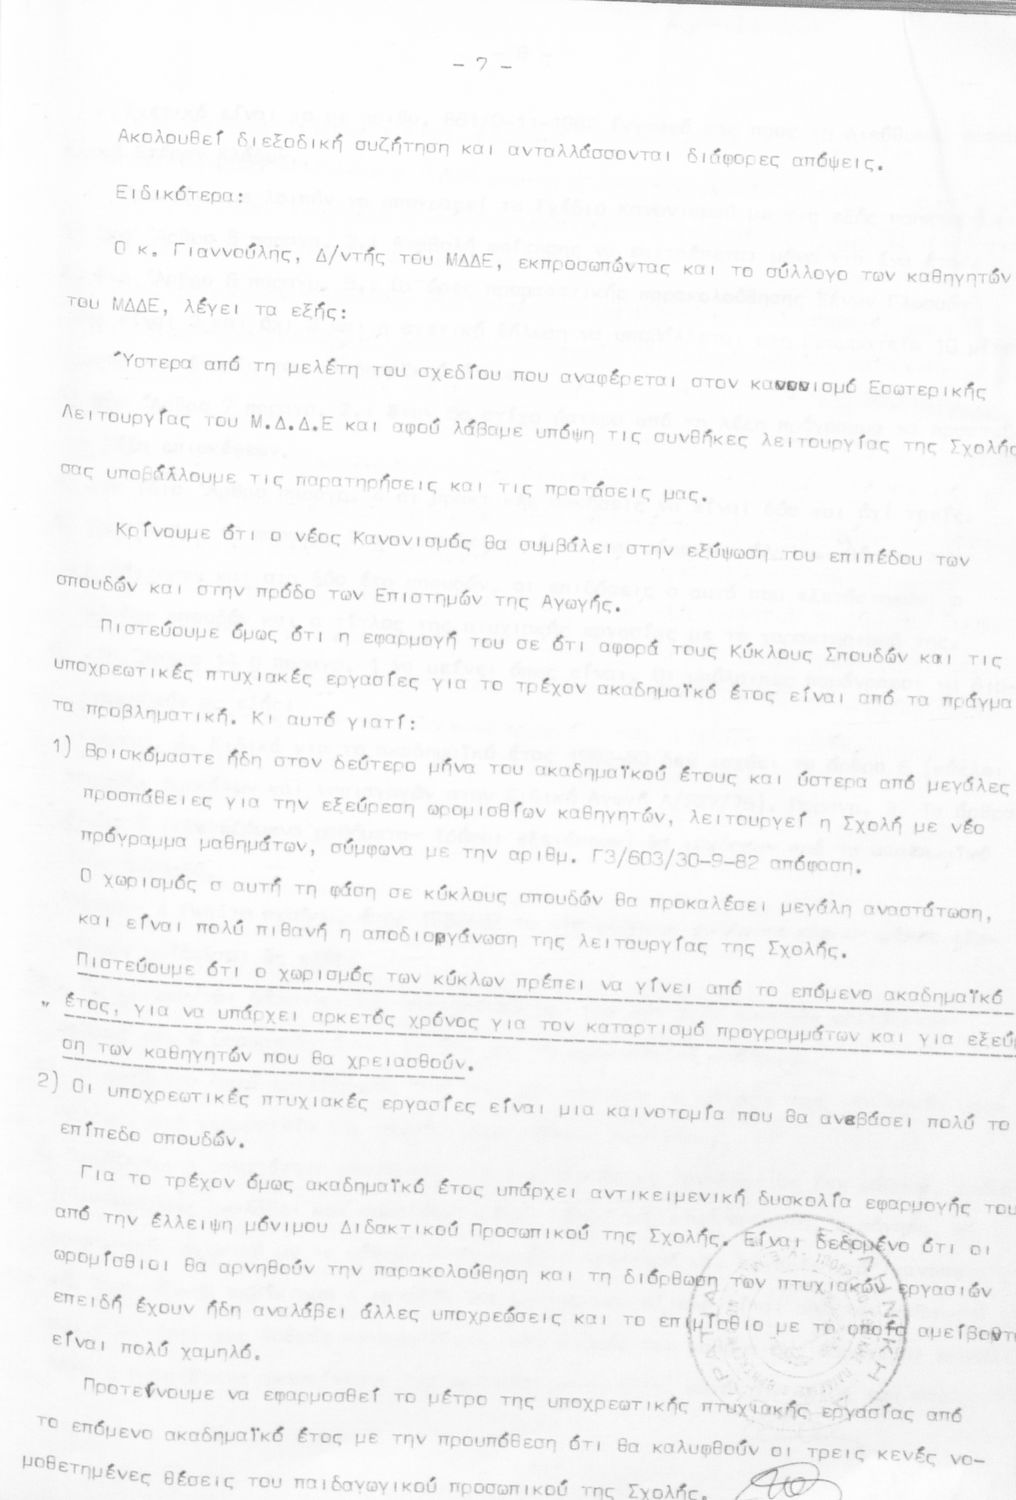 - 7 -
Ακολουθεί διεξοδική συζήτηση και ανταλλάσσονται διάφορες απόψεις.
Ειδικότερα:
Ο κ. Γιαννούλης, Δ/ντής του ΜΔΔΕ, εκπροσωπώντας και το σύλλογο των καθηγητών
του ΜΔΔΕ, λέγει τα εξής:
Ύστερα από τη μελέτη του σχεδίου που αναφέρεται στον κανονισμό Εσωτερικής
Λειτουργίας του Μ.Δ.Δ.Ε και αφού λάβαμε υπόψη τις συνθήκες λειτουργίας της Σχολής
σας υποβάλλουμε τις παρατηρήσεις και τις προτάσεις μας.
Κρίνουμε ότι ο νέος Κανονισμός θα συμβάλει στην εξύψωση του επιπέδου των
σπουδών και στην πρόδο των Επιστημών της Αγωγής.
Πιστεύουμε όμως ότι η εφαρμογή του σε ότι αφορά τους Κύκλους Σπουδών και τις
υποχρεωτικές πτυχιακές εργασίες για το τρέχον ακαδημαϊκό έτος είναι από τα πράγμα
τα προβληματική. Κι αυτό γιατί:
1) Βρισκόμαστε ήδη στον δεύτερο μήνα του ακαδημαϊκού έτους και ύστερα από μεγάλες
προσπάθειες για την εξεύρεση ωρομισθίων καθηγητών, λειτουργεί η Σχολή με νέο
πρόγραμμα μαθημάτων, σύμφωνα με την αριθμ. Γ3/603/30-9-82 απόφαση.
Ο χωρισμός σ αυτή τη φάση σε κύκλους σπουδών θα προκαλέσει μεγάλη αναστάτωση,
και είναι πολύ πιθανή η αποδιοργάνωση της λειτουργίας της Σχολής.
Πιστεύουμε ότι ο χωρισμός των κύκλων πρέπει να γίνει από το επόμενο ακαδημαϊκό
" έτος, για να υπάρχει αρκετός χρόνος για τον καταρτισμό προγραμμάτων και για εξεύρ
ση των καθηγητών που θα χρειασθούν.
2) Οι υποχρεωτικές πτυχιακές εργασίες είναι μια καινοτομία που θα ανεβάσει πολύ το
επίπεδο σπουδών.
Για το τρέχον όμως ακαδημαϊκό έτος υπάρχει αντικειμενική δυσκολία εφαρμογής του
από την έλλειψη μόνιμου Διδακτικού Προσωπικού της Σχολής. Είναι δεδομένο ότι οι
ωρομίσθιοι θα αρνηθούν την παρακολούθηση και τη διόρθωση των πτυχιακών εργασιών
επειδή έχουν ήδη αναλάβει άλλες υποχρεώσεις και το επιμίσθιο με το οποίο αμείβοντα
είναι πολύ χαμηλό.
Προτείνουμε να εφαρμοσθεί το μέτρο της υποχρεωτικής πτυχιακής εργασίας από
το επόμενο ακαδημαϊκό έτος με την προυπόθεση ότι θα καλυφθούν οι τρεις κενές νο-
μοθετημένες θέσεις του παιδαγωγικού προσωπικού της Σχολής.